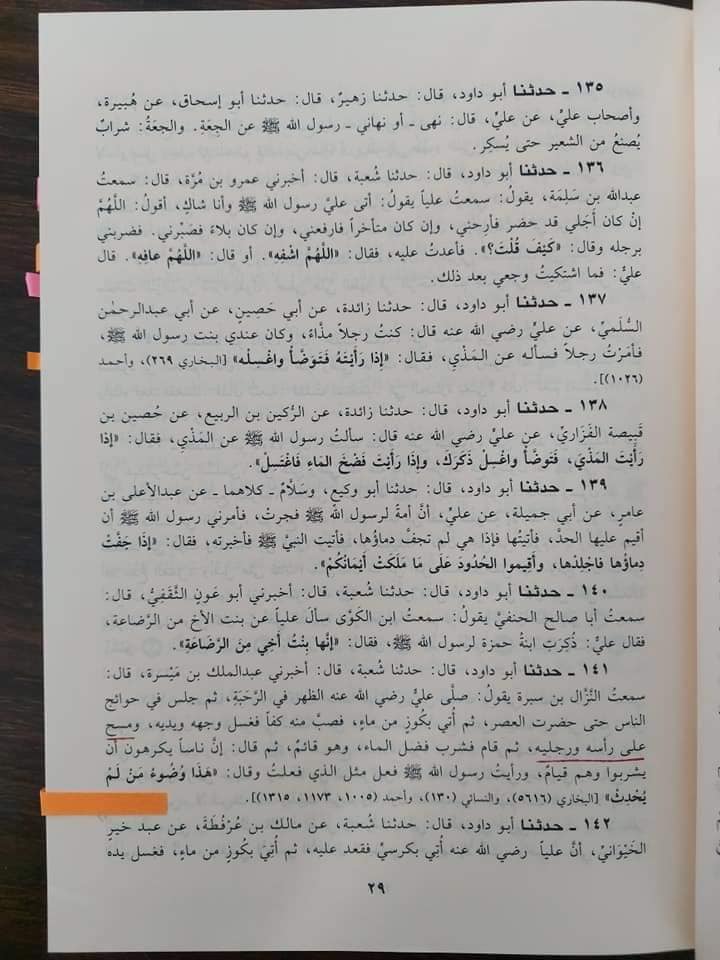 ١٣٥ ـ حدثنا أبو داود، قال: حدثنا زهيرٌ، قال: حدثنا أبو إسحاق، عن هُبيرة،
وأصحاب عليٍّ، عن عليٍّ، قال: نهى ـ أو نهاني ـ رسول الله ﷺ عن الجِعَةِ. والجعَةُ: شرابٌ
يُصنعُ من الشعير حتى يُسكِر.
١٣٦ ـ حدثنا أبو داود، قال: حدثنا شعبة، قال: أخبرني عمرو بن مُرَّة، قال: سمعتُ
عبدالله بن سَلِمَة، يقولُ: سمعتُ علياً يقولُ: أتى عليَّ رسول الله ﷺ وأنا شاكٍ، أقولُ: اللَّهُمَّ
إنْ كان أجَلي قد حضر فأرِحني، وإن كان متأخراً فارفعني، وإن كان بلاءً فصَبِّرني. فضربني
برجله وقال: «كَيْفَ قُلْتَ؟». فأعدتُ عليه، فقال: «اللَّهُمَّ اشْفِهِ». أو قال: «اللَّهُمَّ عافِهِ». قال
عليٌّ: فما اشتكيتُ وجعي بعد ذلك.
١٣٧ ـ حدثنا أبو داود، قال: حدثنا زائدة، عن أبي حَصينٍ، عن أبي عبدالرحمٰن
السُّلَميِّ، عن عليٍّ رضي الله عنه قال: كنتُ رجلاً مذَّاءً، وكان عندي بنت رسول الله ﷺ،
فأمَرْتُ رجلاً فسأله عن المَذْي، فقال: «إذا رَأيْتَهُ فَتَوَضَّأ واغْسِلْه» [البخاري (٢٦٩)، وأحمد
(١٠٢٦)].
١٣٨ ـ حدثنا أبو داود، قال: حدثنا زائدة، عن الرُّكين بن الربيع، عن حُصين بن
قَبِيصة الفَزَاريِّ، عن عليٍّ رضي الله عنه قال: سألتُ رسول الله ﷺ عن المَذْي، فقال: «إذا
رَأَيْتَ المَذْيَ، فَتَوَضَّأْ واغْسِلْ ذَكَرَكَ، وإذا رَأَيْتَ فَضْخَ المَاءِ فَاغْتَسِلْ».
١٣٩ ـ حدثنا أبو داود، قال: حدثنا أبو وكيع، وسَلَّامٌ ـ كلاهما ـ عن عبدالأعلى بن
عامرٍ، عن أبي جميلة، عن عليٍّ، أنَّ أمةً لرسول اللَّه ﷺ فجرتْ، فأمرني رسول الله ﷺ أن
أقيم عليها الحدَّ، فأتيتُها فإذا هي لم تجفَّ دماؤها، فأتيت النبيَّ ﷺ فأخبرته، فقال: «إذَا جَفَّتْ
دِماؤها فَاجْلِدْها، وأَقِيموا الحُدُودَ عَلَى مَا مَلَكَتْ أيْمَانُكُمْ».
١٤٠ ـ حدثنا أبو داود، قال: حدثنا شُعبة، قال: أخبرني أبو عَونٍ الثَّقَفِيُّ، قال:
سمعتُ أبا صالح الحنفيَّ يقولُ: سمعتُ ابن الكَوَّى سألَ علياً عن بنت الأخ من الرَّضاعة،
فقال عليٌّ: ذُكِرَتِ ابنةُ حمزة لرسول الله ﷺ، فقال: «إنَّها بِنْتُ أخِي مِنَ الرَّضَاعَةِ».
١٤١ ـ حدثنا أبو داود، قال: حدثنا شعبة، قال: أخبرني عبدالملك بن مَيْسرة، قال:
سمعتُ النَّزَّال بن سبرة يقولُ: صلَّى عليٌّ رضي الله عنه الظهر في الرَّحَبَةِ، ثم جلس في حوائج
الناس حتى حضرت العصر، ثم أُتي بكُوزٍ من ماءٍ، فصبَّ منه كفاً فغسل وجهه ويديه، ومسح
على رأسه ورجليه، ثم قام فشرب فضل الماء، وهو قائمٌ، ثم قال: إنَّ ناساً يكرهون أن
يشربوا وهم قيامٌ، ورأيتُ رسول الله ﷺ فعل مثل الذي فعلتُ وقال: «هَذَا وُضُوءُ مَنْ لَمْ
يُحْدِثْ» [البخاري (٥٦١٦)، والنسائي (١٣٠)، وأحمد (١٠٠٥، ١١٧٣، ١٣١٥)].
١٤٢ ـ حدثنا أبو داود، قال: حدثنا شعبة، عن مالك بن عُرْفُطَةَ، عن عبد خيرٍ
الخَيْوَانيِّ، أنَّ علياً رضي الله عنه أُتي بكرسيٍّ فقعد عليه، ثم أُتِيَ بكُوزٍ من ماءٍ، فغسل يده
٢٩